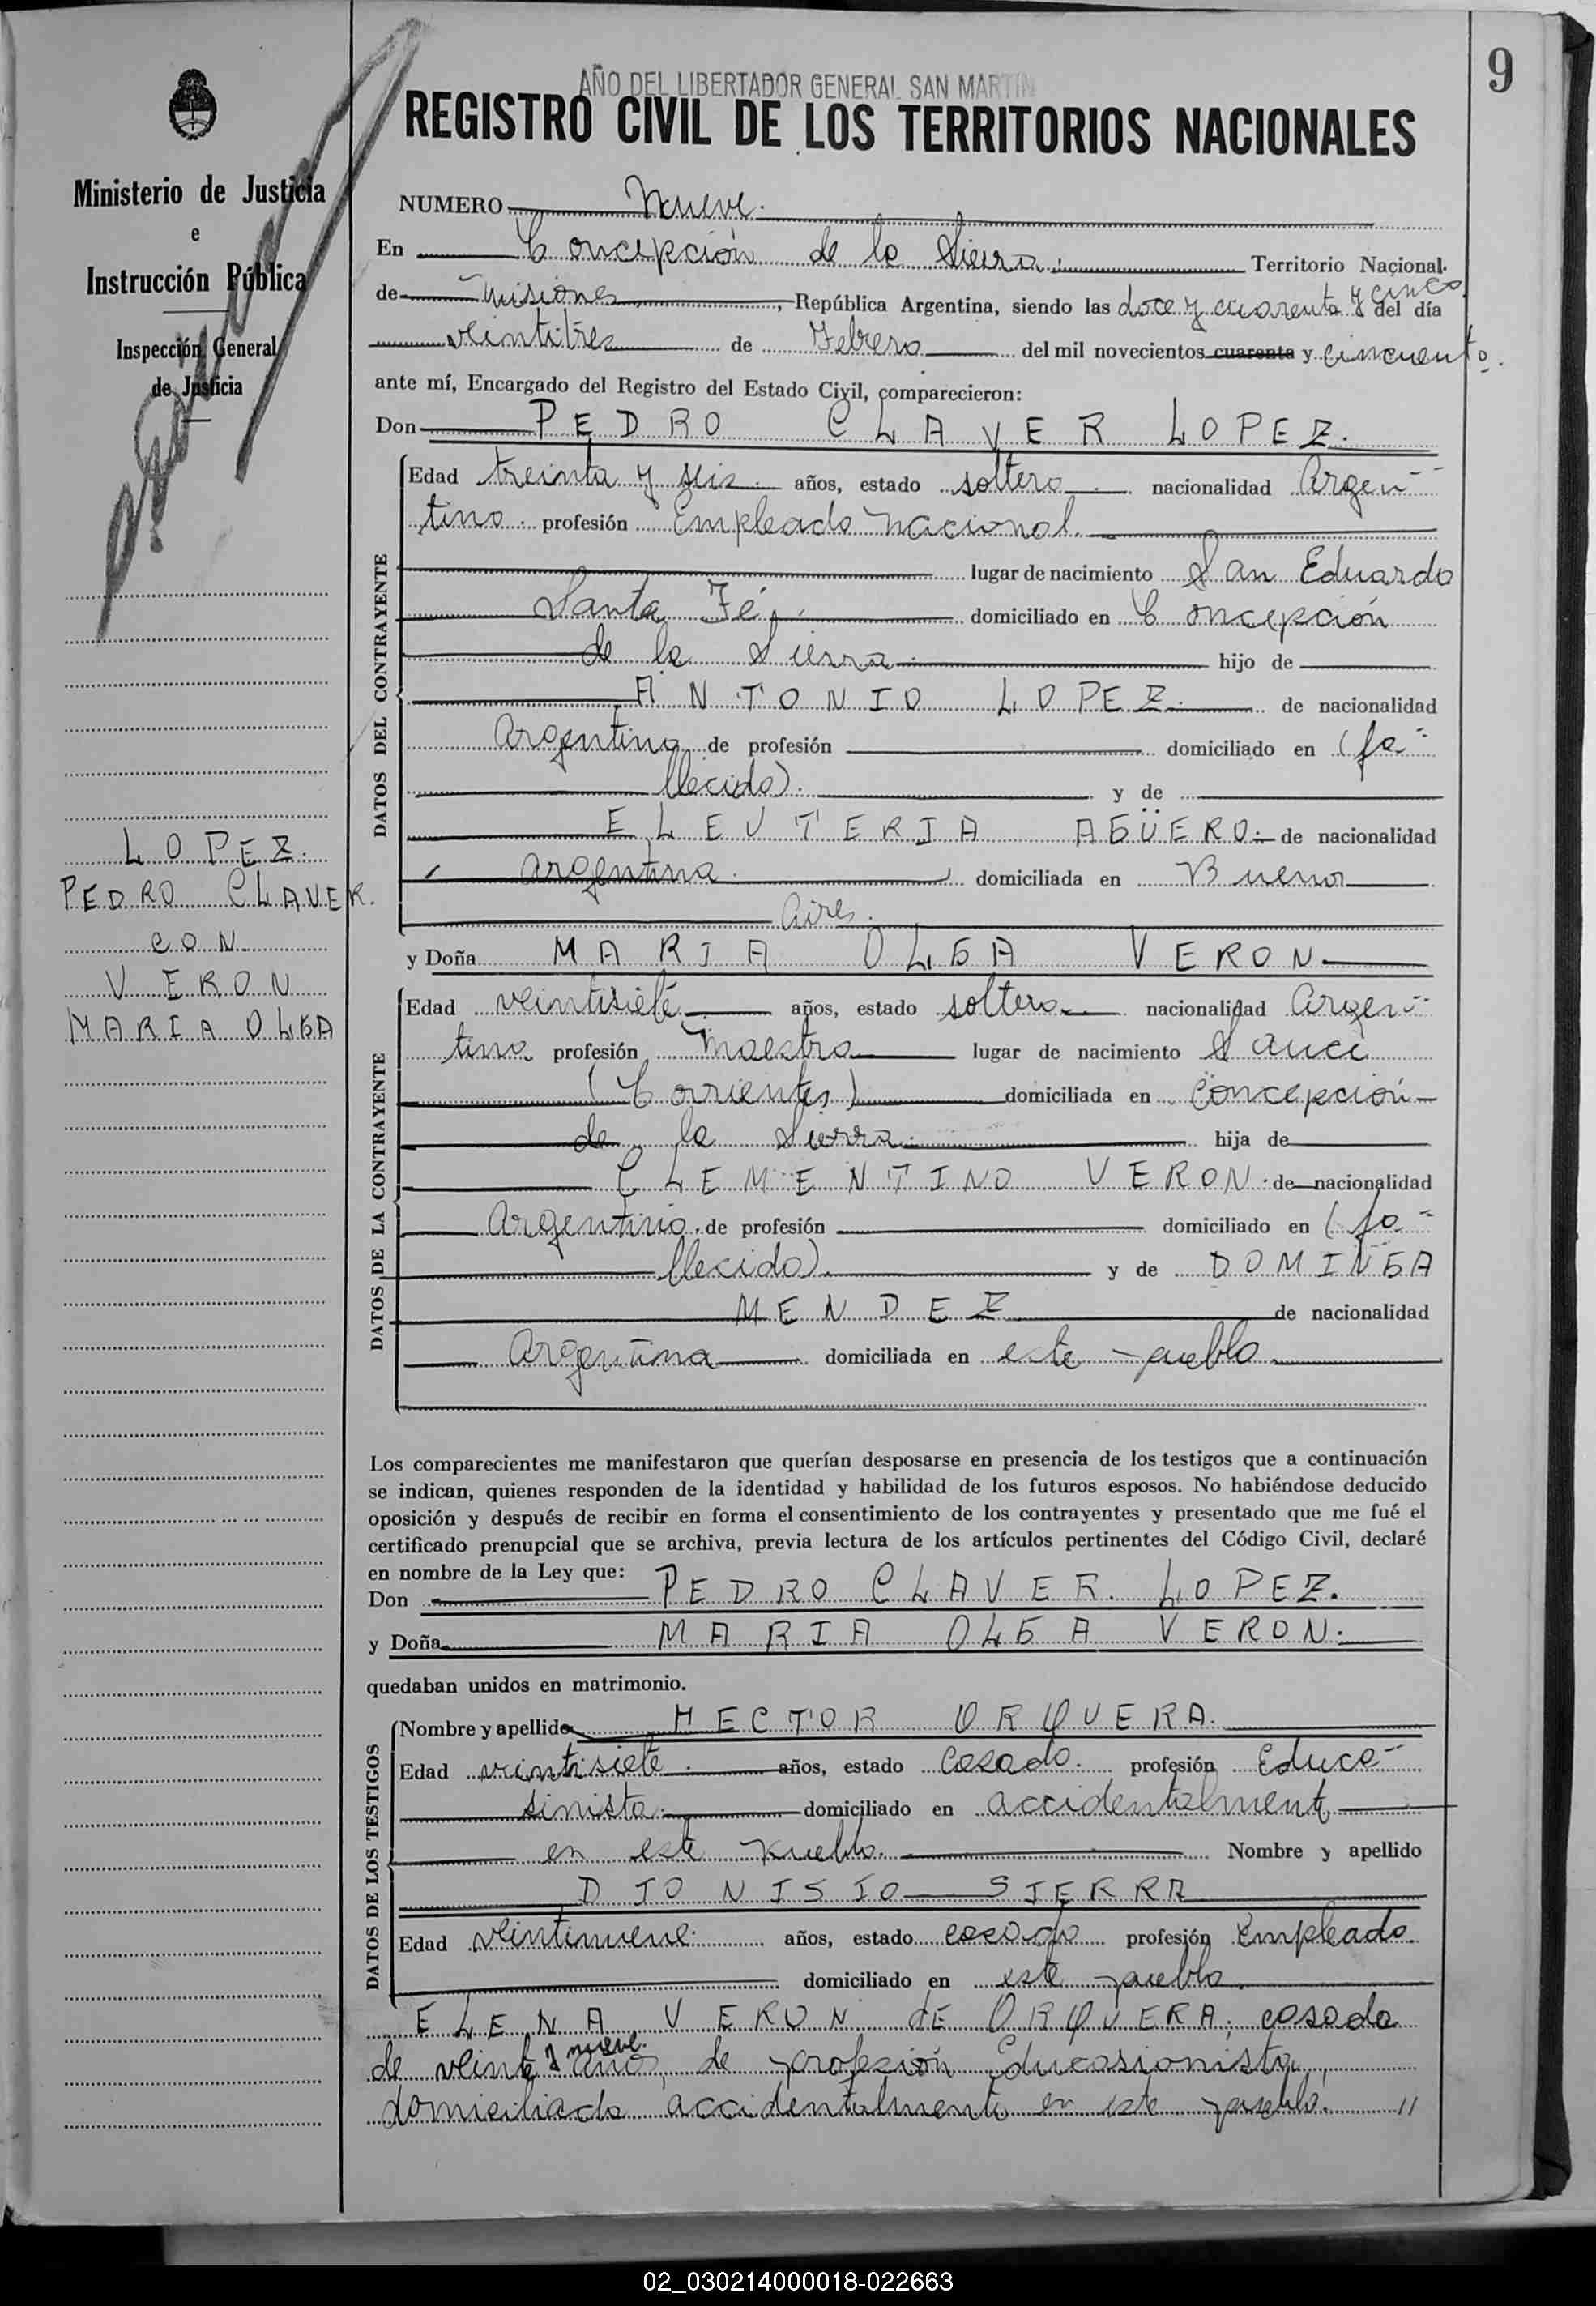 AÑO DEL LIBERTADOR GENERAL SAN MARTIN
9
REGISTRO CIVIL DE LOS TERRITORIOS NACIONALES
Ministerio de Justicia
e
Instrucción Pública
Inspección General
de Justicia
LOPEZ.
PEDRO CLAVER.
CON
VERON
MARIA OLGA
NUMERO Nueve.
En Concepción de la Sierra. Territorio Nacional
de Misiones, República Argentina, siendo las doce y cuarenta y cinco del día
veintitres de Febrero del mil novecientos cuarenta y cincuenta.
ante mí, Encargado del Registro del Estado Civil, comparecieron:
Don PEDRO CLAVER LOPEZ.
DATOS DEL CONTRAYENTE
Edad treinta y seis años, estado soltero nacionalidad Argen-
tino. profesión Empleado Nacional.
lugar de nacimiento San Eduardo
Santa Fé. domiciliado en Concepción
de la Sierra. hijo de
ANTONIO LOPEZ. de nacionalidad
Argentino de profesión domiciliado en (fa-
llecido). y de
ELEUTERIA AGÜERO. de nacionalidad
Argentina. domiciliada en Buenos
Aires.
y Doña MARIA OLGA VERON
DATOS DE LA CONTRAYENTE
Edad veintisiete años, estado soltera nacionalidad Argen-
tina profesión Maestra lugar de nacimiento Sauce
(Corrientes) domiciliada en Concepción
de la Sierra. hija de
CLEMENTINO VERON. de nacionalidad
Argentino. de profesión domiciliado en (fa-
llecido). y de DOMINGA
MENDEZ de nacionalidad
Argentina domiciliada en este pueblo.
Los comparecientes me manifestaron que querían desposarse en presencia de los testigos que a continuación
se indican, quienes responden de la identidad y habilidad de los futuros esposos. No habiéndose deducido
oposición y después de recibir en forma el consentimiento de los contrayentes y presentado que me fué el
certificado prenupcial que se archiva, previa lectura de los artículos pertinentes del Código Civil, declaré
en nombre de la Ley que:
Don PEDRO CLAVER. LOPEZ.
y Doña MARIA OLGA VERON.
quedaban unidos en matrimonio.
DATOS DE LOS TESTIGOS
Nombre y apellido HECTOR ORQUERA.
Edad veintisiete. años, estado casado. profesión Educa-
sinista. domiciliado en accidentalmente
en este pueblo. Nombre y apellido
DIONISIO SIERRA
Edad veintinueve. años, estado casado profesión Empleado.
domiciliado en este pueblo.
ELENA VERON dE ORQUERA, casada
de veinte y nueve. años, de profesión Educasionista,
domiciliada accidentalmente en este pueblo. "
02_030214000018-022663